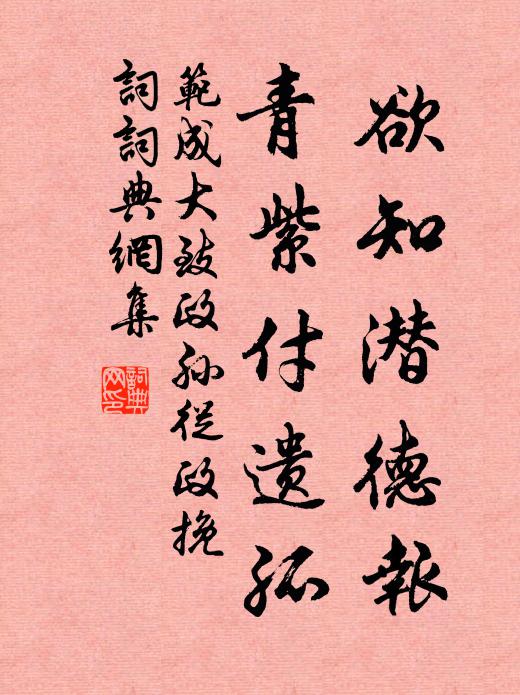 欲知潜德報
青紫付遗孤
範成大致政孙從政挽
詞詞典網集
詞典網印